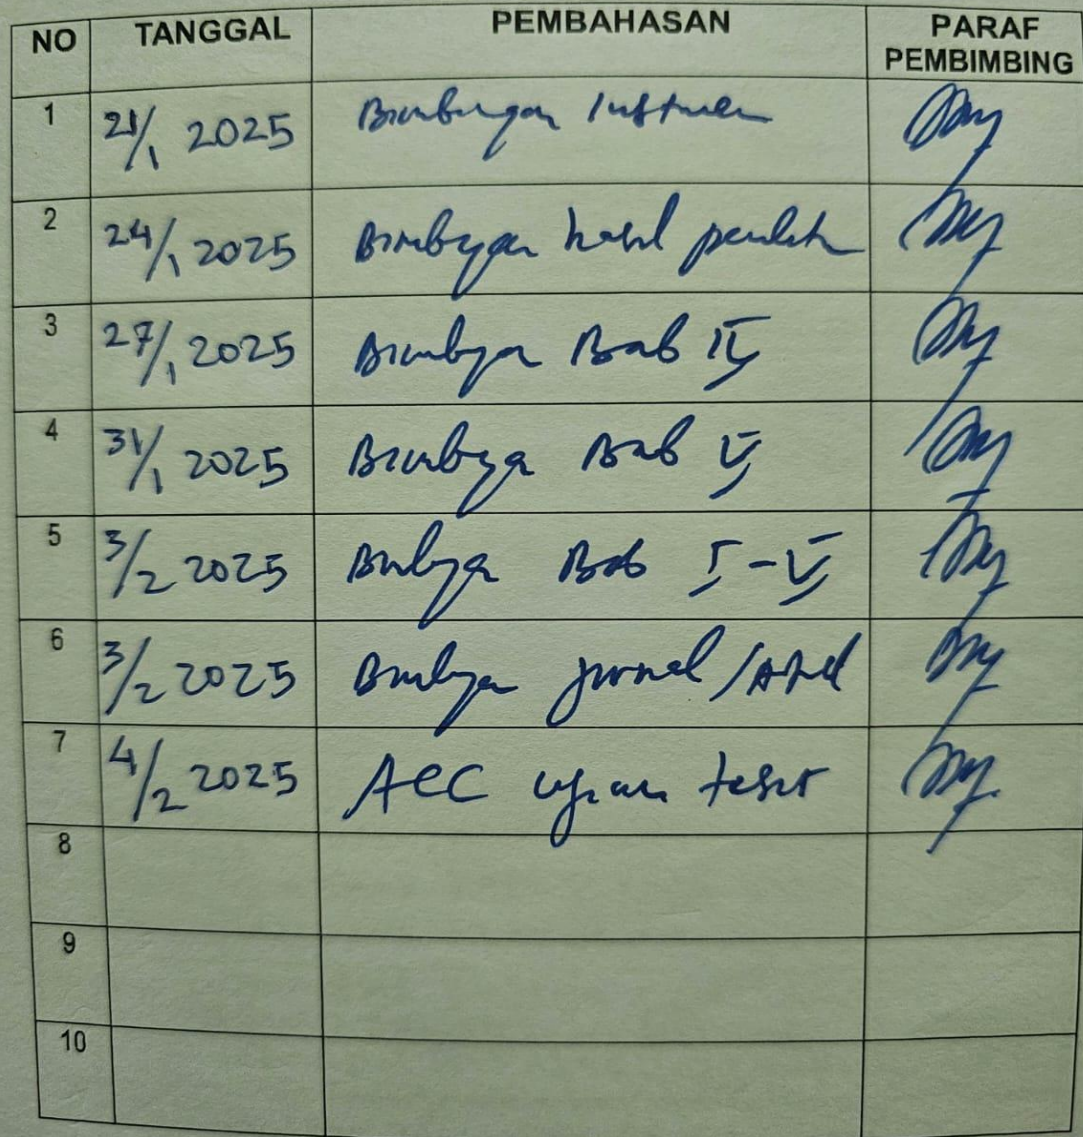 NO TANGGAL PEMBAHASAN PARAF PEMBIMBING
1 21/1 2025 Bimbingan Instrumen
2 24/1 2025 Bimbingan hasil penelitian
3 27/1 2025 Bimbingan Bab IV
4 31/1 2025 Bimbingan Bab V
5 3/2 2025 Bimbingan Bab I-V
6 3/2 2025 Bimbingan jurnal/Artikel
7 4/2 2025 ACC ujian tesis
8
9
10